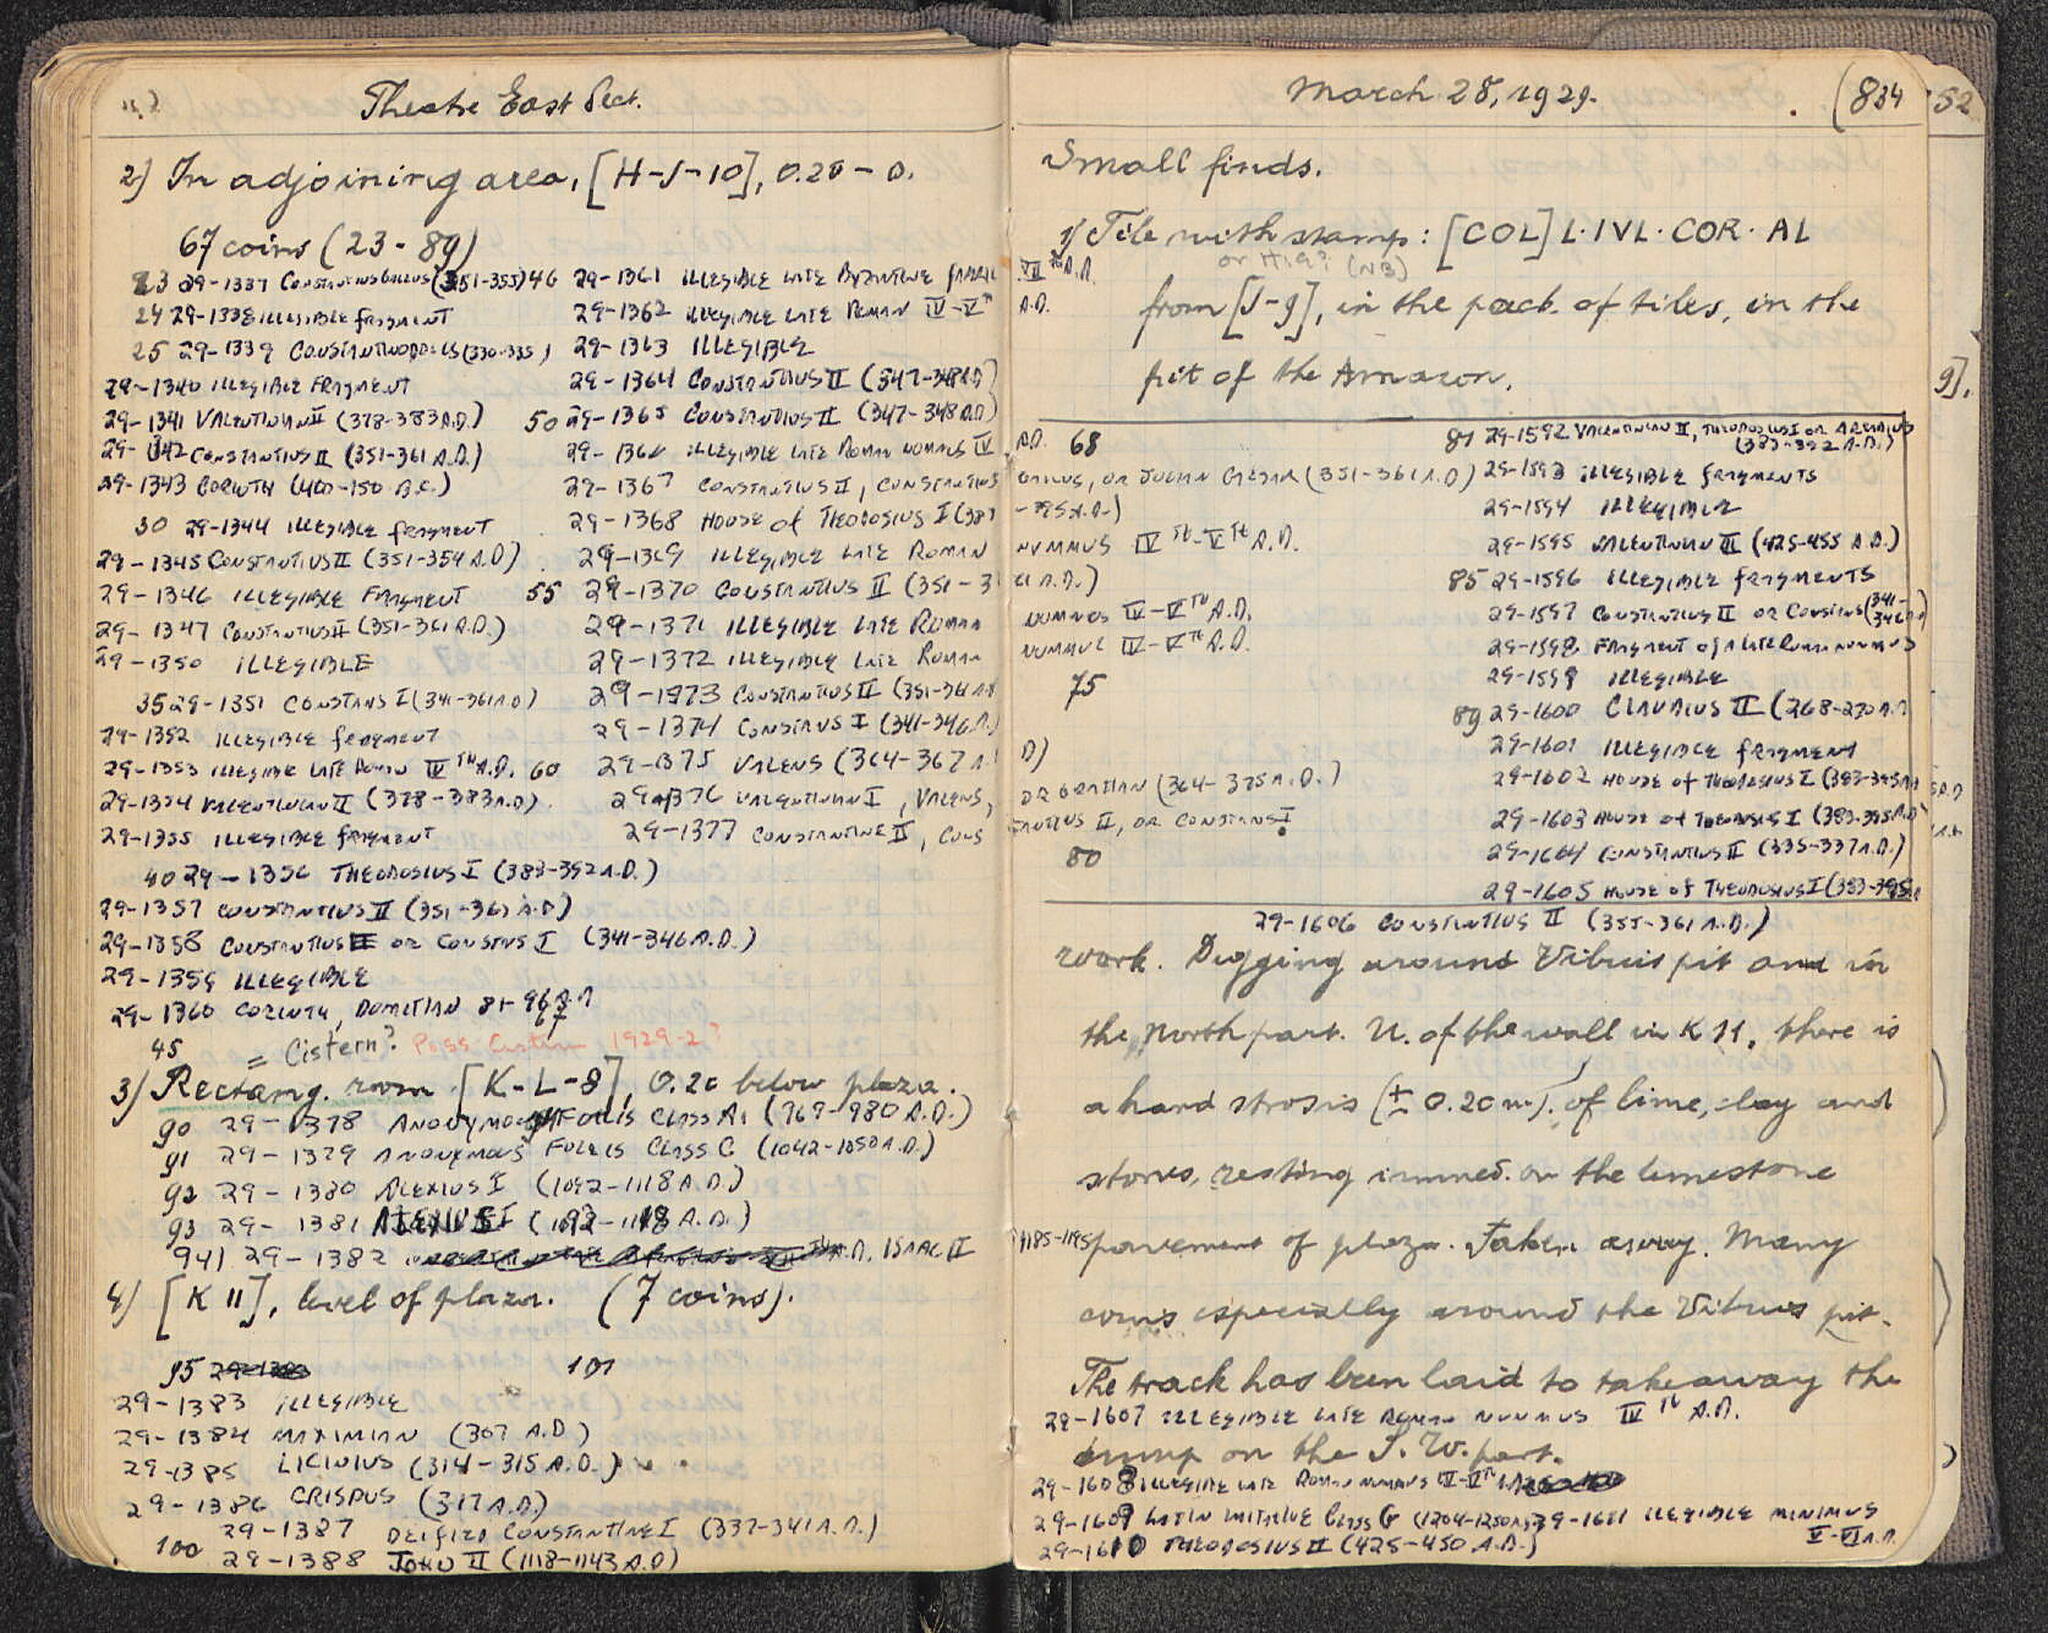 Theatre East Sect.
2) In adjoining area, [H-J-10], 0.20 – 0.
67 coins (23-89)
23 29-1337 Constantius Gallus (351-355)
24 29-1338 illegible fragment
25 29-1339 Constantinopolis (330-335)
29-1340 illegible fragment
29-1341 Valentinian II (378-383 A.D.)
29-1342 Constantius II (351-361 A.D.)
29-1343 Corinth (400-150 B.C.)
30 29-1344 illegible fragment
29-1345 Constantius II (351-354 A.D)
29-1346 illegible fragment
29-1347 Constantius II (351-361 A.D.)
29-1350 illegible
35 29-1351 Constans I (341-361 A.D)
29-1352 illegible fragment
29-1353 illegible late Roman IV TH A.D.
29-1354 Valentinian II (378-383 A.D)
29-1355 illegible fragment
40 29-1356 Theodosius I (383-392 A.D.)
29-1357 Constantius II (351-361 A.D)
29-1358 Constantius II or Constans I (341-346 A.D.)
29-1359 illegible
29-1360 Corinth, Domitian 81-96 A.D
45
46 29-1361 illegible late Byzantine fabric VII th A.D.
29-1362 illegible late Roman IV-V th A.D.
29-1363 illegible
29-1364 Constantius II (347-348 A.D)
50 29-1365 Constantius II (347-348 A.D)
29-1366 illegible late Roman nummus IV A.D.
29-1367 Constantius II, Constantius Gallus, or Julian Caesar (351-361 A.D)
29-1368 House of Theodosius I (383-395 A.D.)
29-1369 illegible late Roman nummus IV th-V th A.D.
55 29-1370 Constantius II (351-361 A.D.)
29-1371 illegible late Roman nummus IV-V TH A.D.
29-1372 illegible late Roman nummus IV-V th A.D.
29-1373 Constantius II (351-361 A.D
29-1374 Constans I (341-346 A.D)
60 29-1375 Valens (364-367 A.D)
29-1376 Valentinian I, Valens, or Gratian (364-375 A.D.)
29-1377 Constantine II, Constantius II, or Constans I
= Cistern? Poss Cistern 1929-2?
3) Rectang. room [K-L-8], 0.20 below plaza.
90 29-1378 Anonymous Follis Class A1 (969-980 A.D.)
91 29-1379 Anonymous Follis Class C (1042-1050 A.D.)
92 29-1380 Alexius I (1092-1118 A.D.)
93 29-1381 Alexius I (1092-1118 A.D.)
94 29-1382 A.D. Isaac II 1185-1195
4) [K 11], level of plaza. (7 coins).
95 101
29-1383 illegible
29-1384 Maximian (307 A.D)
29-1385 Licinius (314-315 A.D.)
29-1386 Crispus (317 A.D.)
29-1387 Deified Constantine I (337-341 A.D.)
100 29-1388 John II (1118-1143 A.D)
March 28, 1929. (834
52
Small finds.
1) Tile with stamp: [COL] L·IVL·COR·AL
or H.19? (NB)
from [J-9], in the pack of tiles, in the
pit of the Amazon.
9].
68
75
80
81 29-1592 Valentinian II, Theodosius I or Arcadius (383-392 A.D.)
29-1593 illegible fragments
29-1594 illegible
29-1595 Valentinian III (425-455 A.D.)
85 29-1596 illegible fragments
29-1597 Constantius II or Constans (341-346 A.D)
29-1598 Fragment of a late Roman nummus
29-1599 illegible
89 29-1600 Claudius II (268-270 A.D
29-1601 illegible fragment
29-1602 House of Theodosius I (383-395 A.D)
29-1603 House of Theodosius I (383-395 A.D)
29-1604 Constantius II (335-337 A.D.)
29-1605 House of Theodosius I (383-395
29-1606 Constantius II (355-361 A.D.)
work. Digging around Vibius pit and in
the North part. N. of the wall in K 11, there is
a hard strosis (± 0.20 m). of lime, clay and
stones, resting immed. on the limestone
pavement of plaza. Taken away. Many
coins especially around the Vibius pit.
The track has been laid to take away the
29-1607 illegible late Roman nummus IV th A.D.
dump on the S.W. part.
29-1608 illegible late Roman nummus IV-V th
29-1609 Latin imitative Class G (1204-1250 A.D) 29-1611 illegible minimus V-VI A.D.
29-1610 Theodosius II (425-450 A.D.)